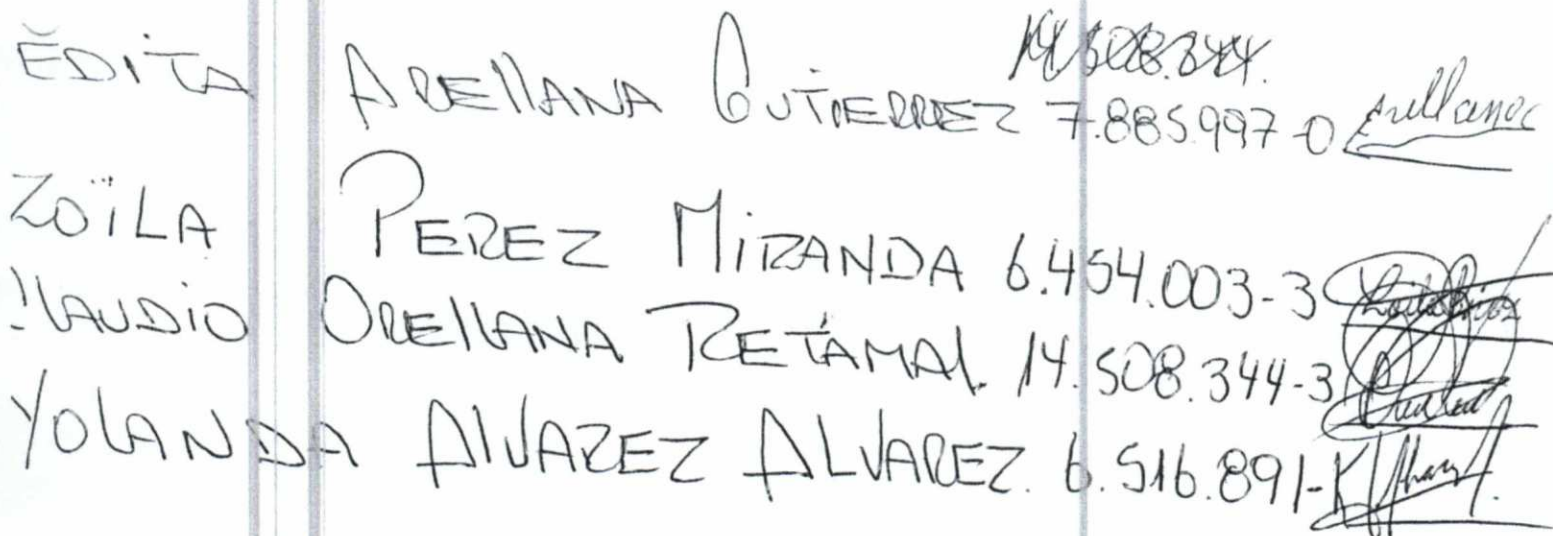 14.508.344.
EDITA ARELLANA GUTIERREZ 7.885.997-0 Arellano
ZOILA PEREZ MIRANDA 6.454.003-3
CLAUDIO ORELLANA RETAMAL. 14.508.344-3
YOLANDA ALVAREZ ALVAREZ. 6.516.891-K